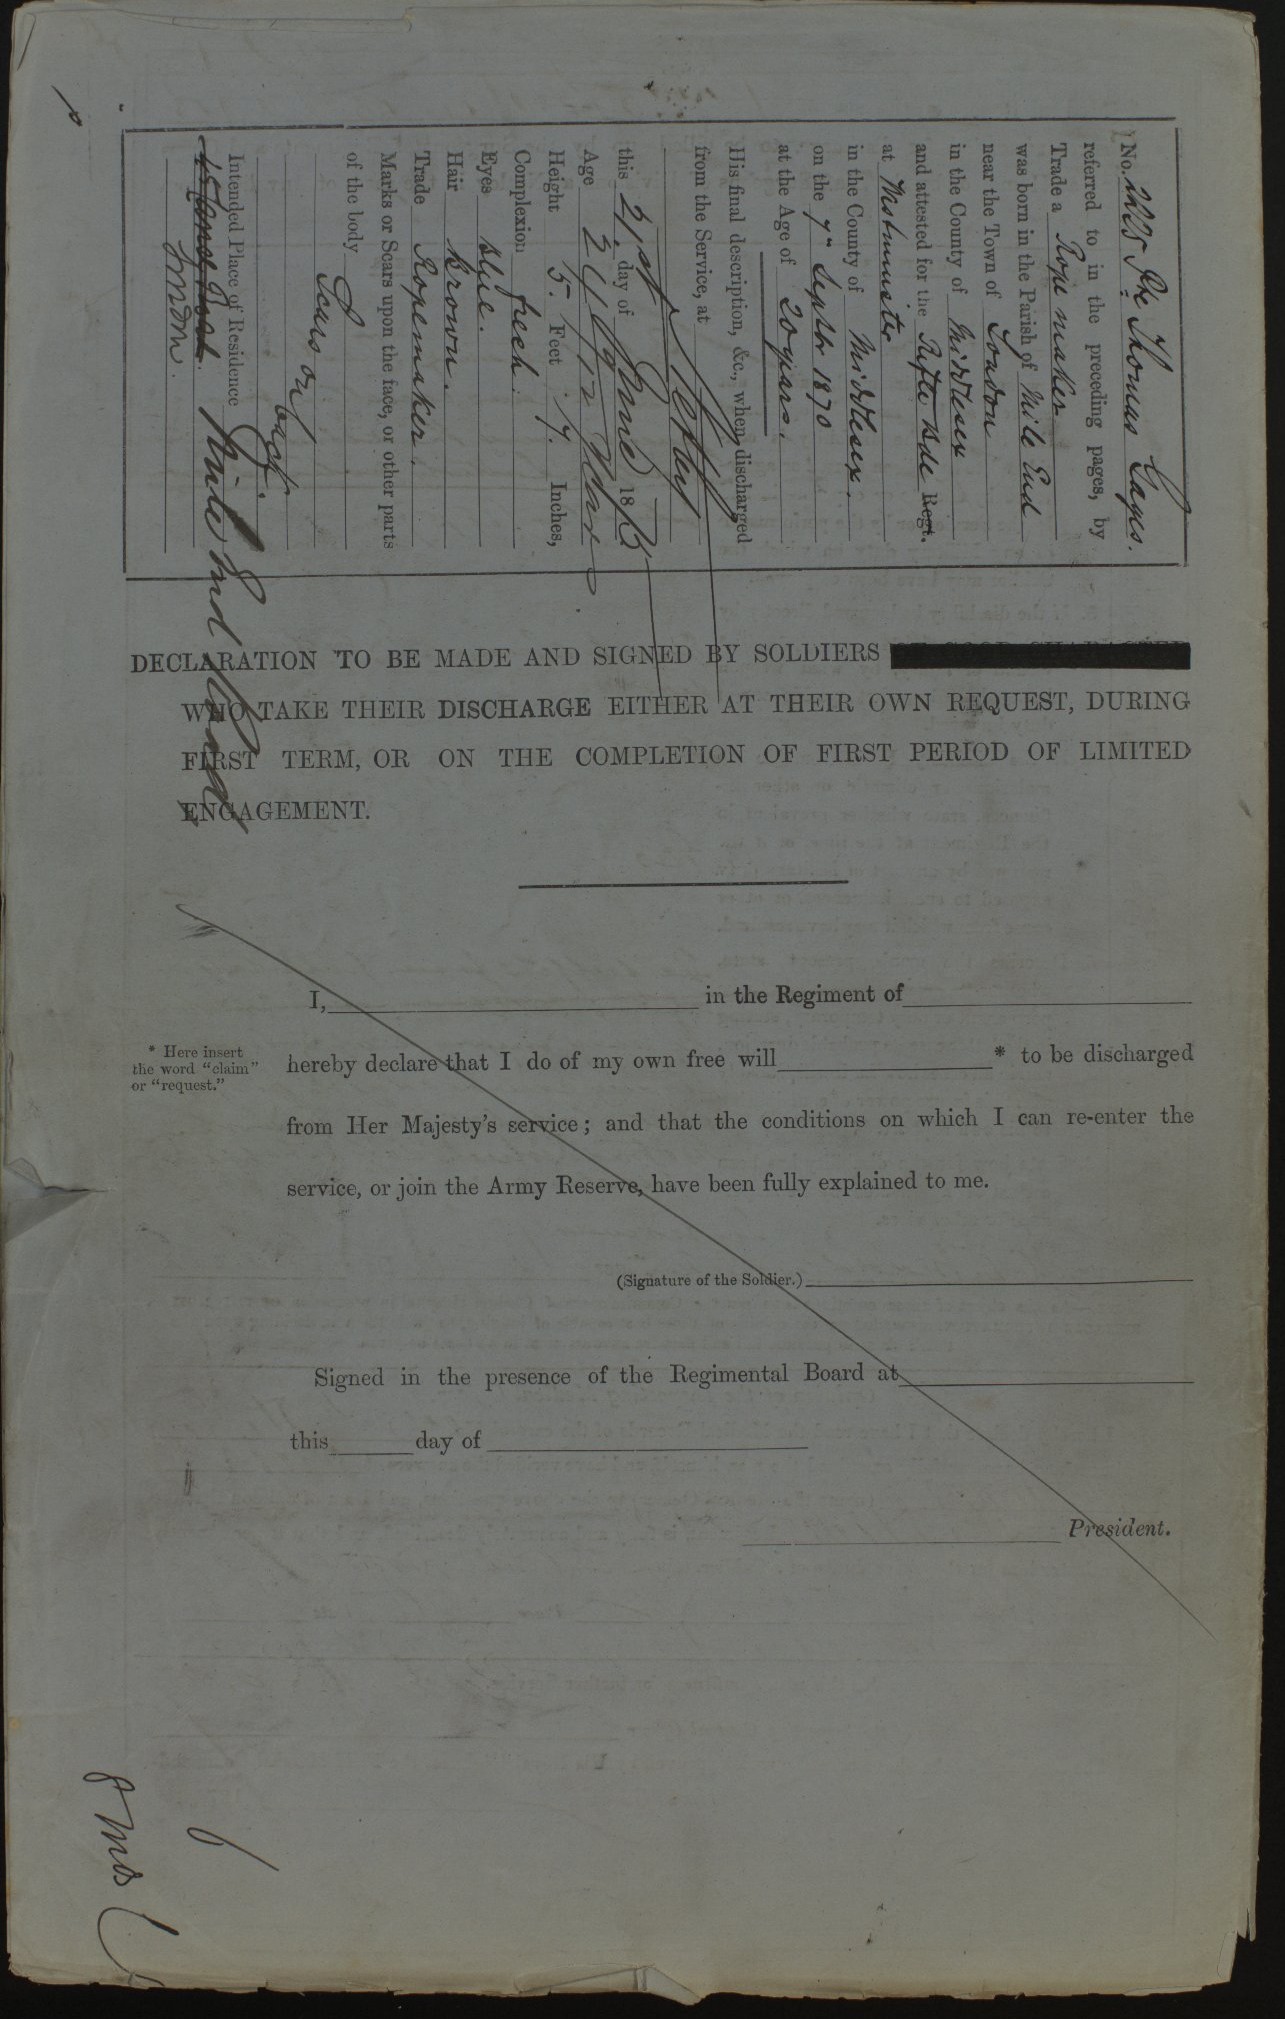 No. 2225 Pte Thomas Gages.
referred to in the preceding pages, by
Trade a Rope maker
was born in the Parish of Mile End
near the Town of London
in the County of Middlesex
and attested for the Rifle Bde Regt.
at Westminster
in the County of Middlesex.
on the 7th Septbr 1870
at the Age of 20 years.
His final description, &c., when discharged
from the Service, at
Netley
this 21st day of June 18
Age
Height 5. Feet 7. Inches,
Complexion fresh.
Eyes Blue.
Hair Brown.
Trade Ropemaker.
Marks or Scars upon the face, or other parts
of the body
Scars on
back.
Intended Place of Residence
Mile End Road
London.
DECLARATION TO BE MADE AND SIGNED BY SOLDIERS
WHO TAKE THEIR DISCHARGE EITHER AT THEIR OWN REQUEST, DURING
FIRST TERM, OR ON THE COMPLETION OF FIRST PERIOD OF LIMITED
ENGAGEMENT.
I, in the Regiment of
* Here insert
the word "claim"
or "request."
hereby declare that I do of my own free will * to be discharged
from Her Majesty's service; and that the conditions on which I can re-enter the
service, or join the Army Reserve, have been fully explained to me.
(Signature of the Soldier.)
Signed in the presence of the Regimental Board at
this day of
President.